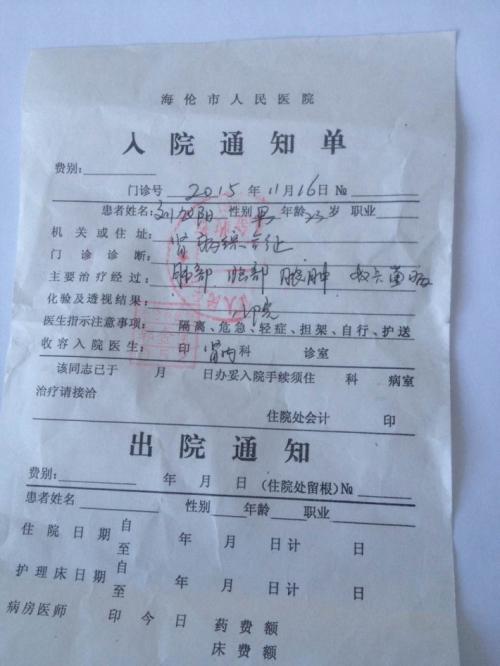 海伦市人民医院
入院通知单
费别:
门诊号 2015年11月16日 №
患者姓名: 阳 性别 男 年龄 23 岁 职业
机关或住址:
门诊诊断: 肾病综合征
主要治疗经过: 肺部 脓肿
化验及透视结果:
医生指示注意事项: 隔离、危急、轻症、担架、自行、护送
收容入院医生: 印 肾内科 诊室
该同志已于 月 日办妥入院手续须住 科 病室
治疗请接洽
住院处会计 印
出院通知
费别: 年 月 日 (住院处留根) №
患者姓名 性别 年龄 职业
住院日期 自 至 年 月 日计 日
护理床日期 自 至 年 月 日计 日
病房医师 印 今日 药费额
床费额